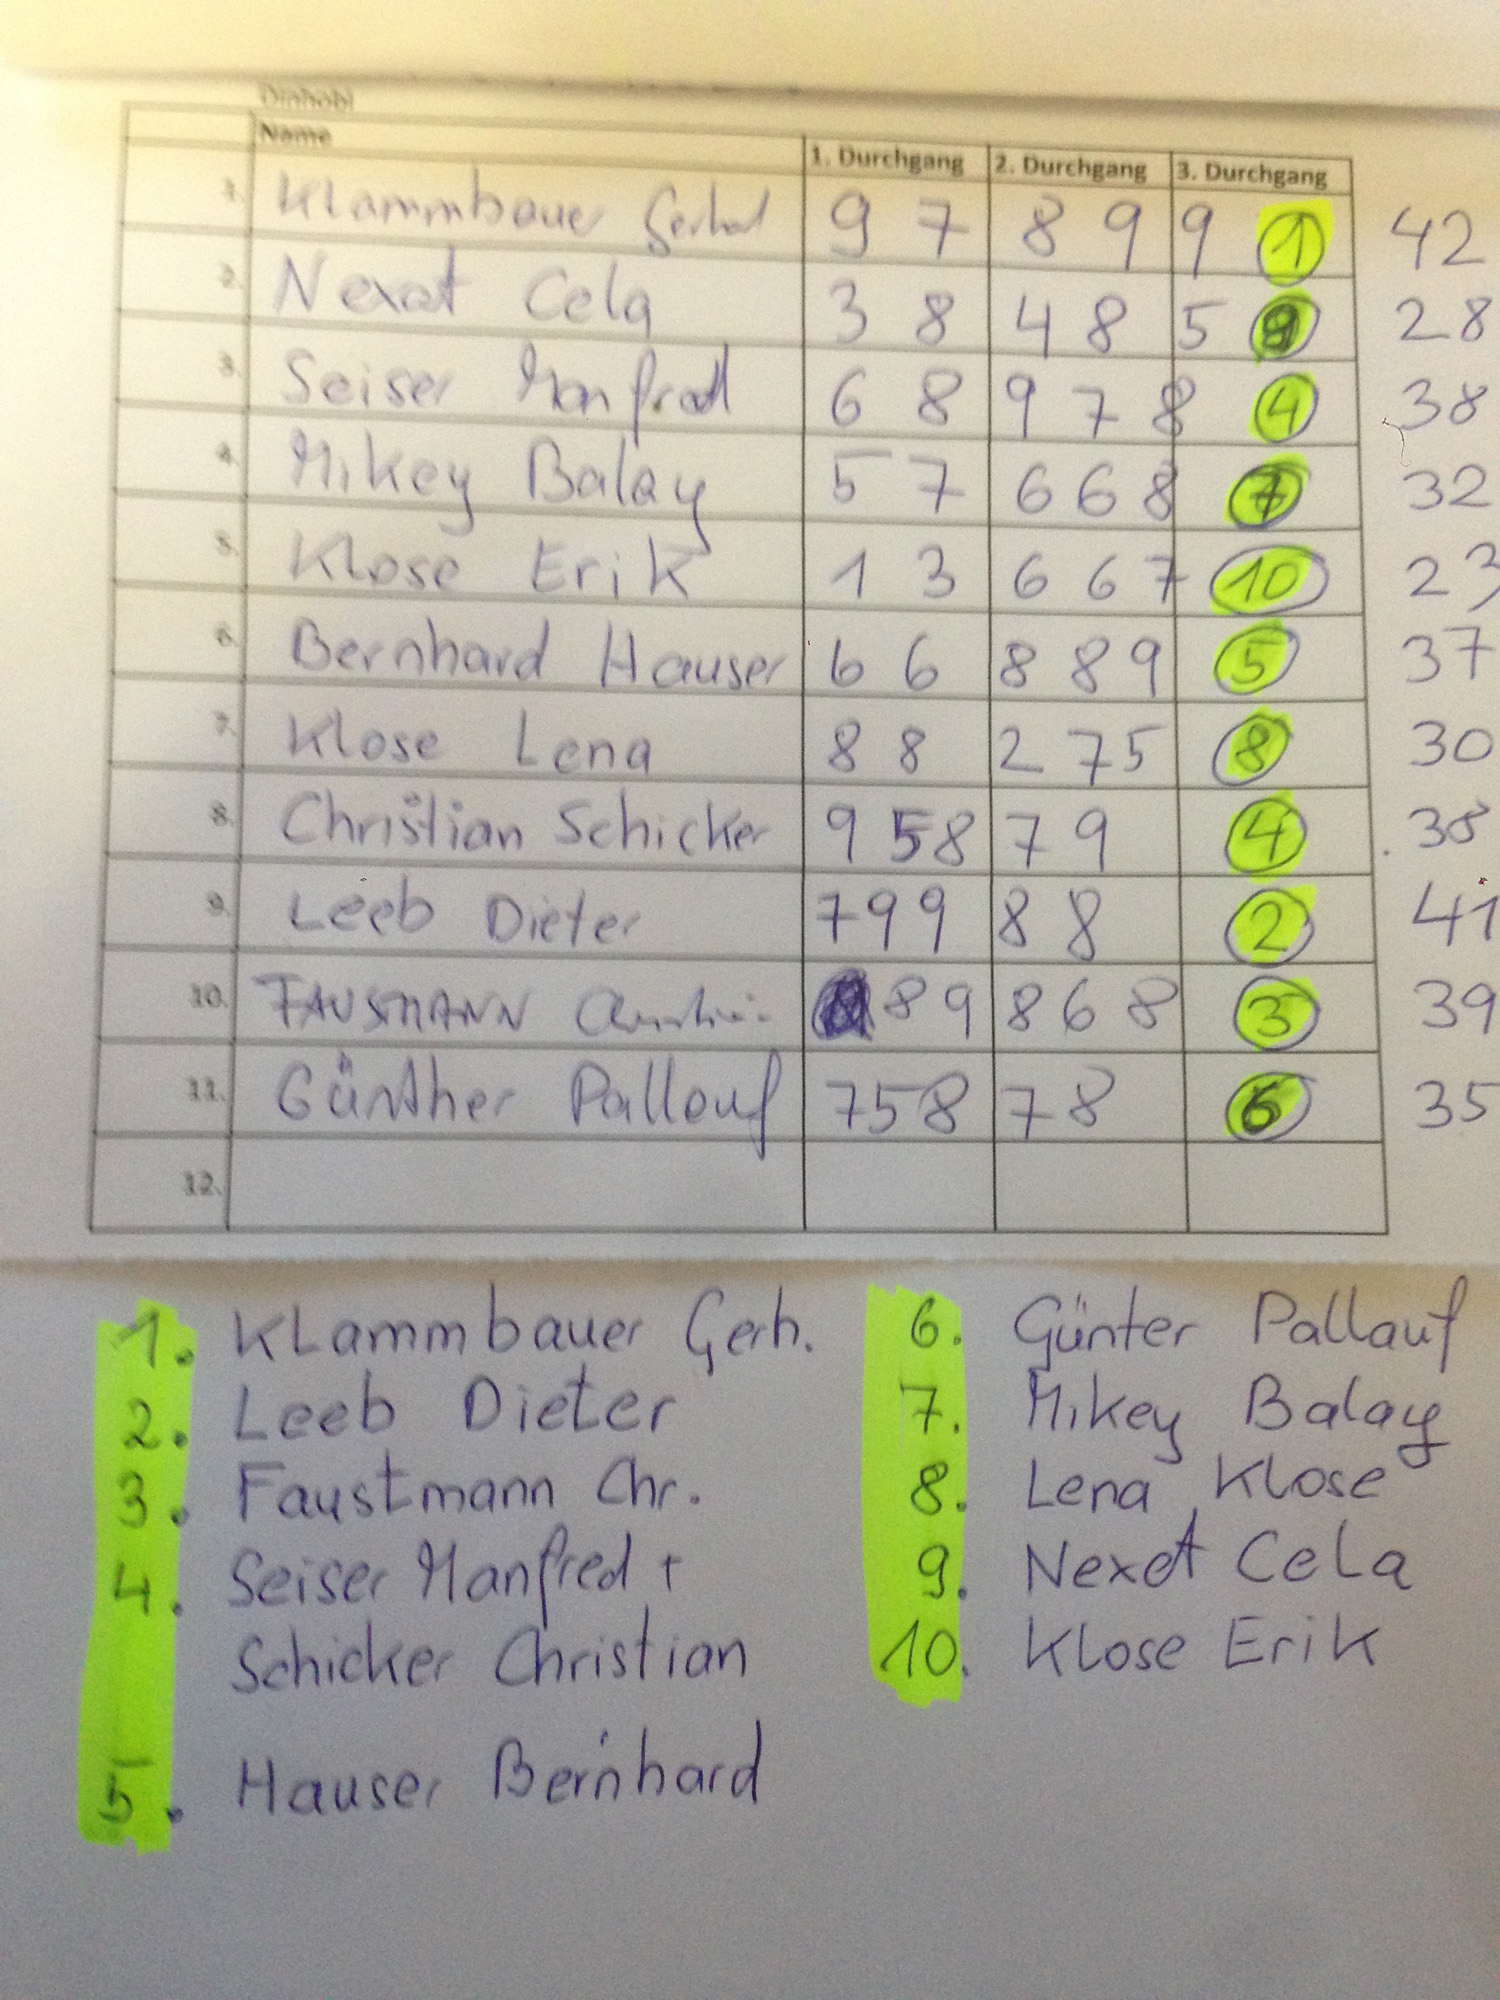 Dinhobl
Name 1. Durchgang 2. Durchgang 3. Durchgang
1. Klammbauer Gerhard 9 7 8 9 9 1 42
2. Nexat Cela 3 8 4 8 5 9 28
3. Seiser Manfred 6 8 9 7 8 4 38
4. Mikey Balay 5 7 6 6 8 7 32
5. Klose Erik 1 3 6 6 7 10 23
6. Bernhard Hauser 6 6 8 8 9 5 37
7. Klose Lena 8 8 2 7 5 8 30
8. Christian Schicker 9 5 8 7 9 4 38
9. Leeb Dieter 7 9 9 8 8 2 41
10. FAUSTMANN 8 9 8 6 8 3 39
11. Günther Pallauf 7 5 8 7 8 6 35
12.
1. Klammbauer Gerh.
2. Leeb Dieter
3. Faustmann Chr.
4. Seiser Manfred +
Schicker Christian
5. Hauser Bernhard
6. Günter Pallauf
7. Mikey Balay
8. Lena Klose
9. Nexat Cela
10. Klose Erik